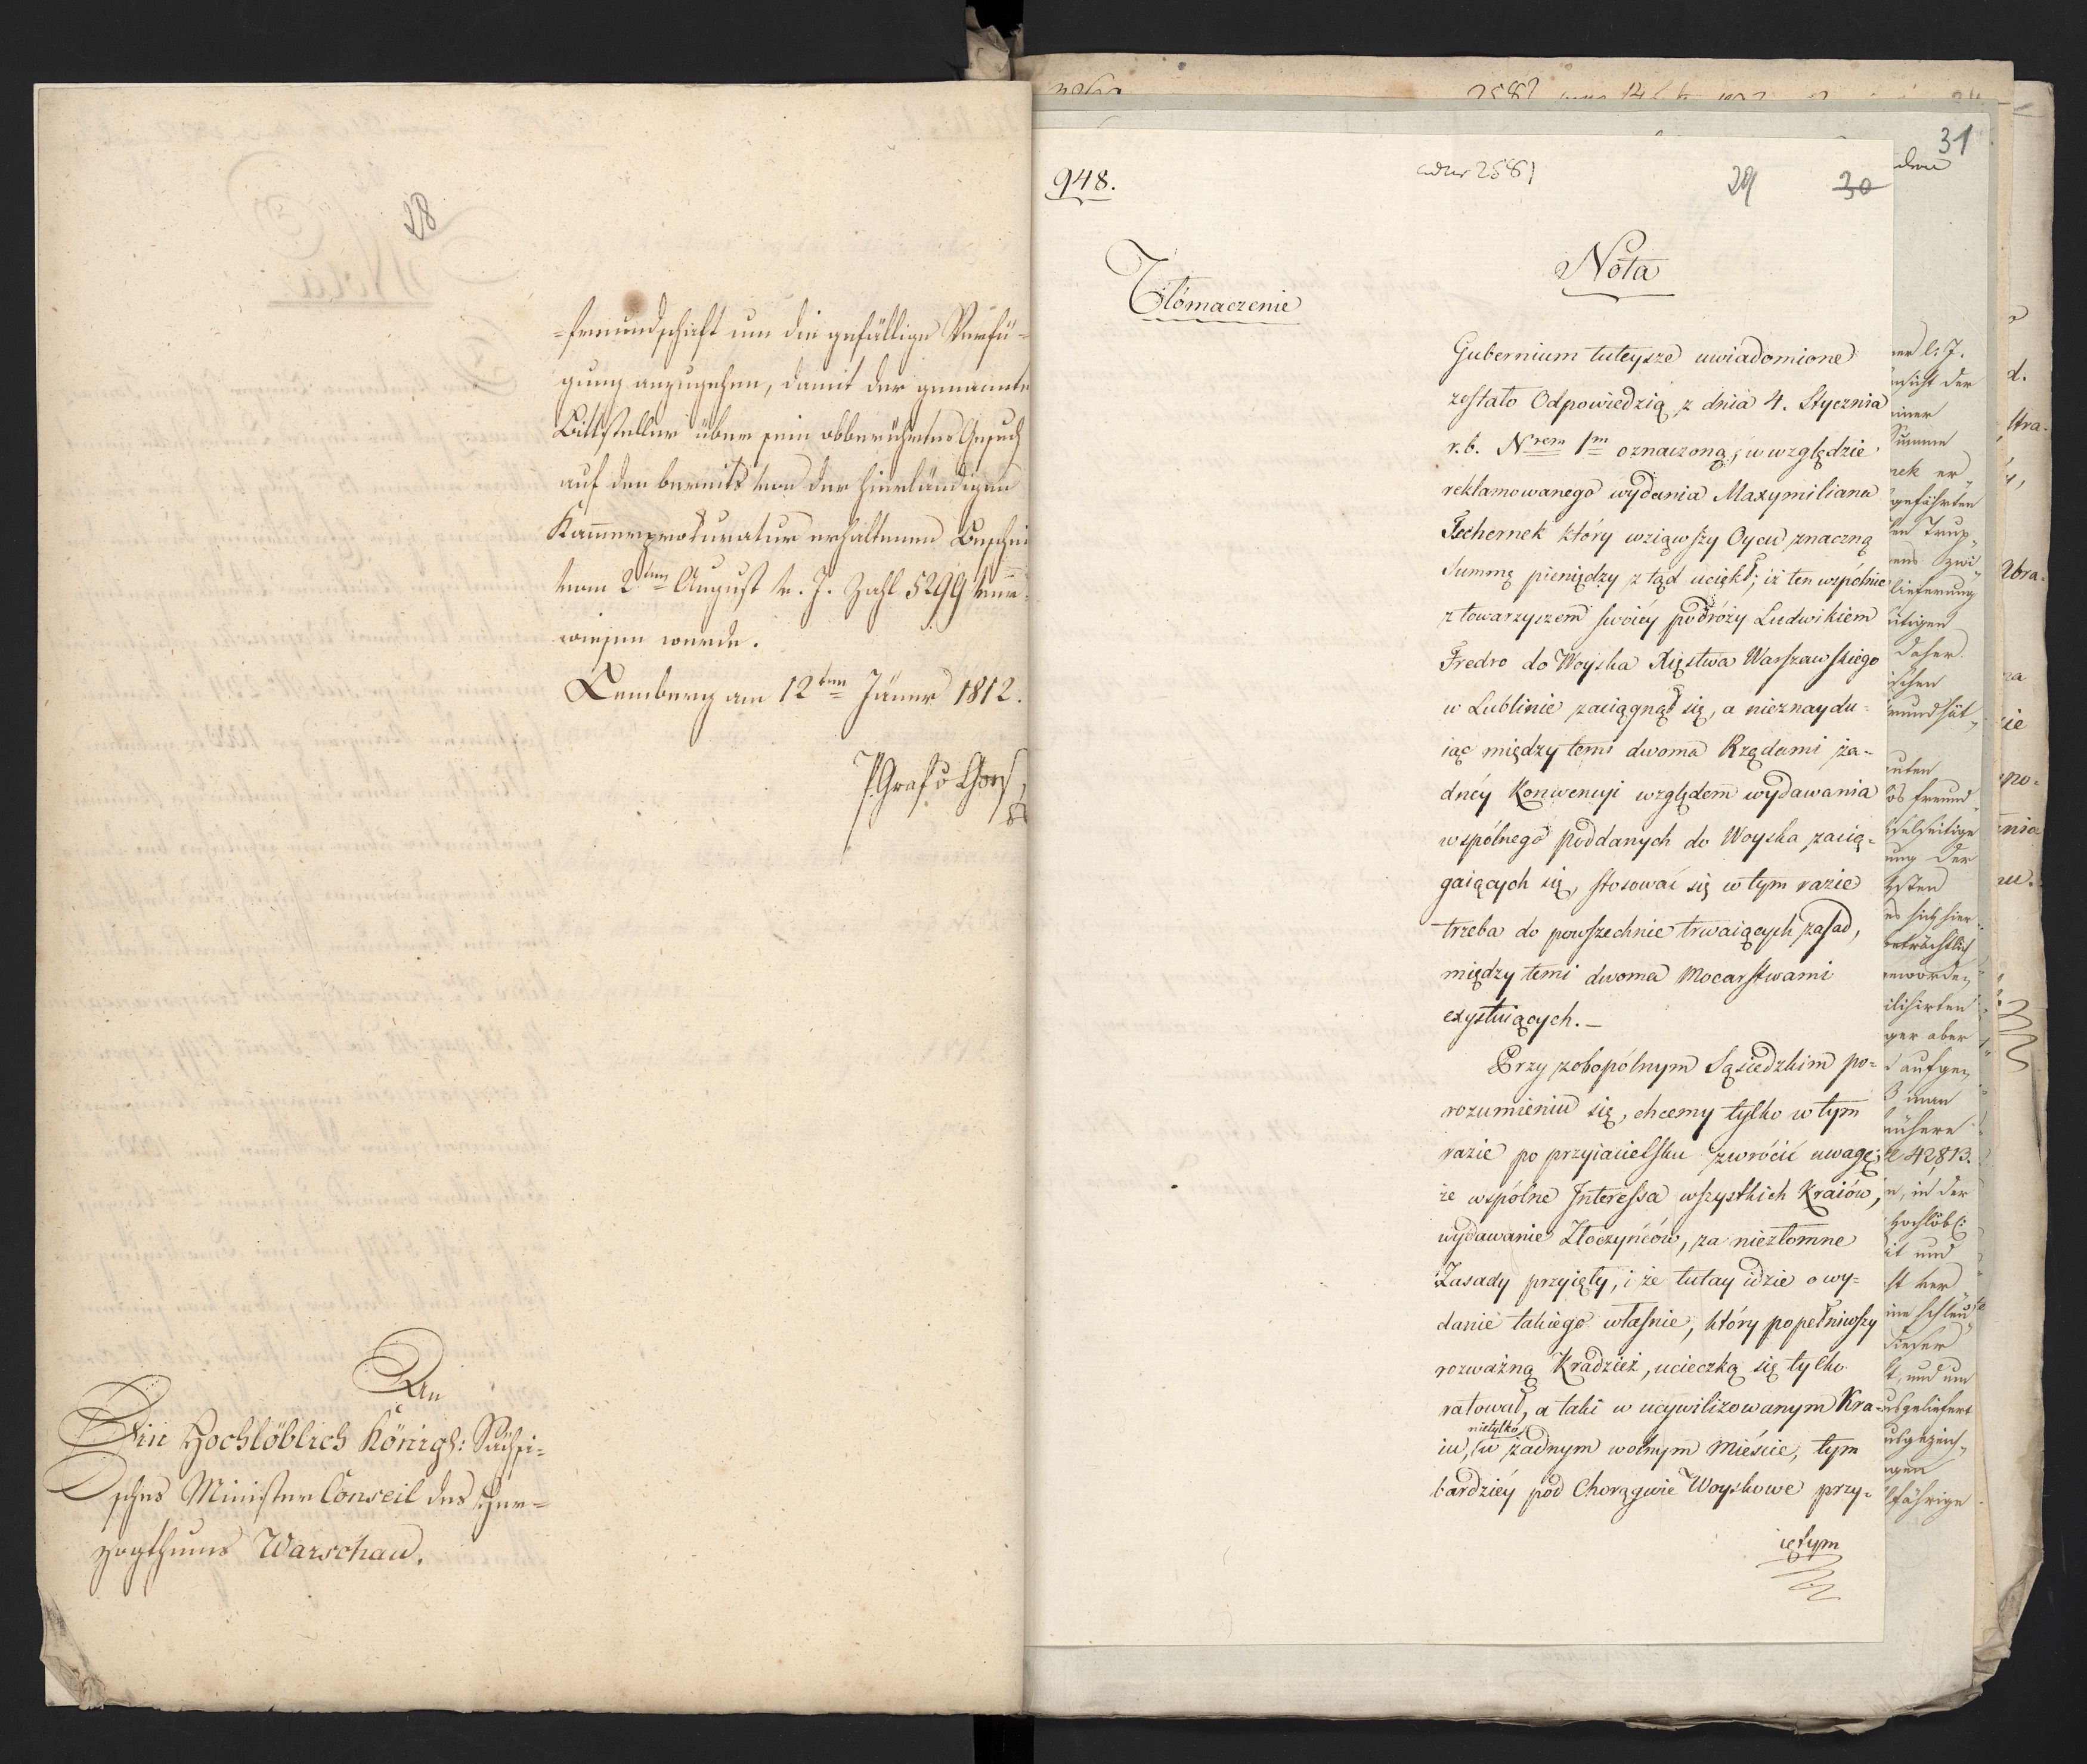 28
-freundschaft um die gefällige Verfü-
gung anzugehen, damit der genannte
Bittsteller über sein obberührtes Gesuch
auf den bereits von der hierländigen
Kammerprokuratur erhaltenen Beschei
vom 2ten August v. J. Zahl 5299 ver-
wiesen werde.
Lemberg am 12ten Jäner 1812.
P Graf v Goes
An
Ein Hochlöblich Königl: Sächsi-
sches Minister Conseil des Her-
zogthums Warschau.
948.
2581
29 30
31
Tłómaczenie
Nota
Gubernium tuteysze uwiadomione
zostało Odpowiedzią z dnia 4. Stycznia
r.b. Nrem 1m oznaczoną, w względzie
reklamowanego wydania Maxymiliana
Techernek który wziąwszy Oycu znaczną
Summę pieniędzy z tąd uciekł; iż ten wspólnie
z towarzyszem swoiéy podróży Ludwikiem
Fredro do Woyska Xięstwa Warszawskiego
w Lublinie zaciągnął się, a nieznaydu-
iąc między temi dwoma Rządami ża-
dnéy Konwencyi względem wydawania
wspólnego poddanych do Woyska zacią-
gaiących się, stosować się w tym razie
trzeba do powszechnie trwaiących zasad,
między temi dwoma Mocarstwami
exystuiących.-
Przy zobopólnym Sąsiedzkim po-
rozumieniu się, chcemy tylko w tym
razie po przyiacielsku zwrócić uwagę;
że wspólne Interessa wszystkich Kraiów,
wydawanie Złoczyńców, za niezłomne
Zasady przyięły, i że tutay idzie o wy-
danie takiego własnie, który popełniwszy
rozważną Kradzież, ucieczką się tylko
ratował, a taki w ucywilizowanym Kra-
iu, nietylko w żadnym wolnym Mieście, tym
bardziéy pod Chorągwie Woyskowe przy-
iętym